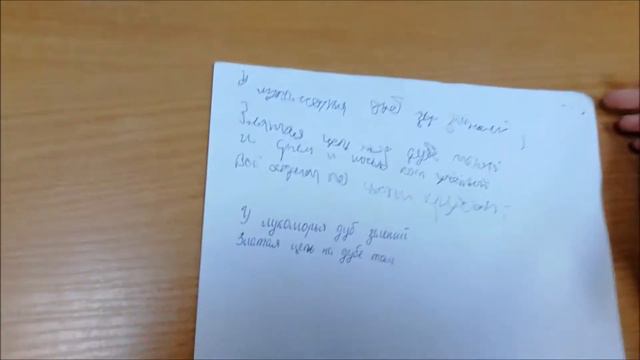 У лукоморья дуб
Златая цепь на дубе
И днем и ночью кот учёный
Всё ходит по цепи кругом
У лукоморья дуб зелений
Златая цепь на дубе том